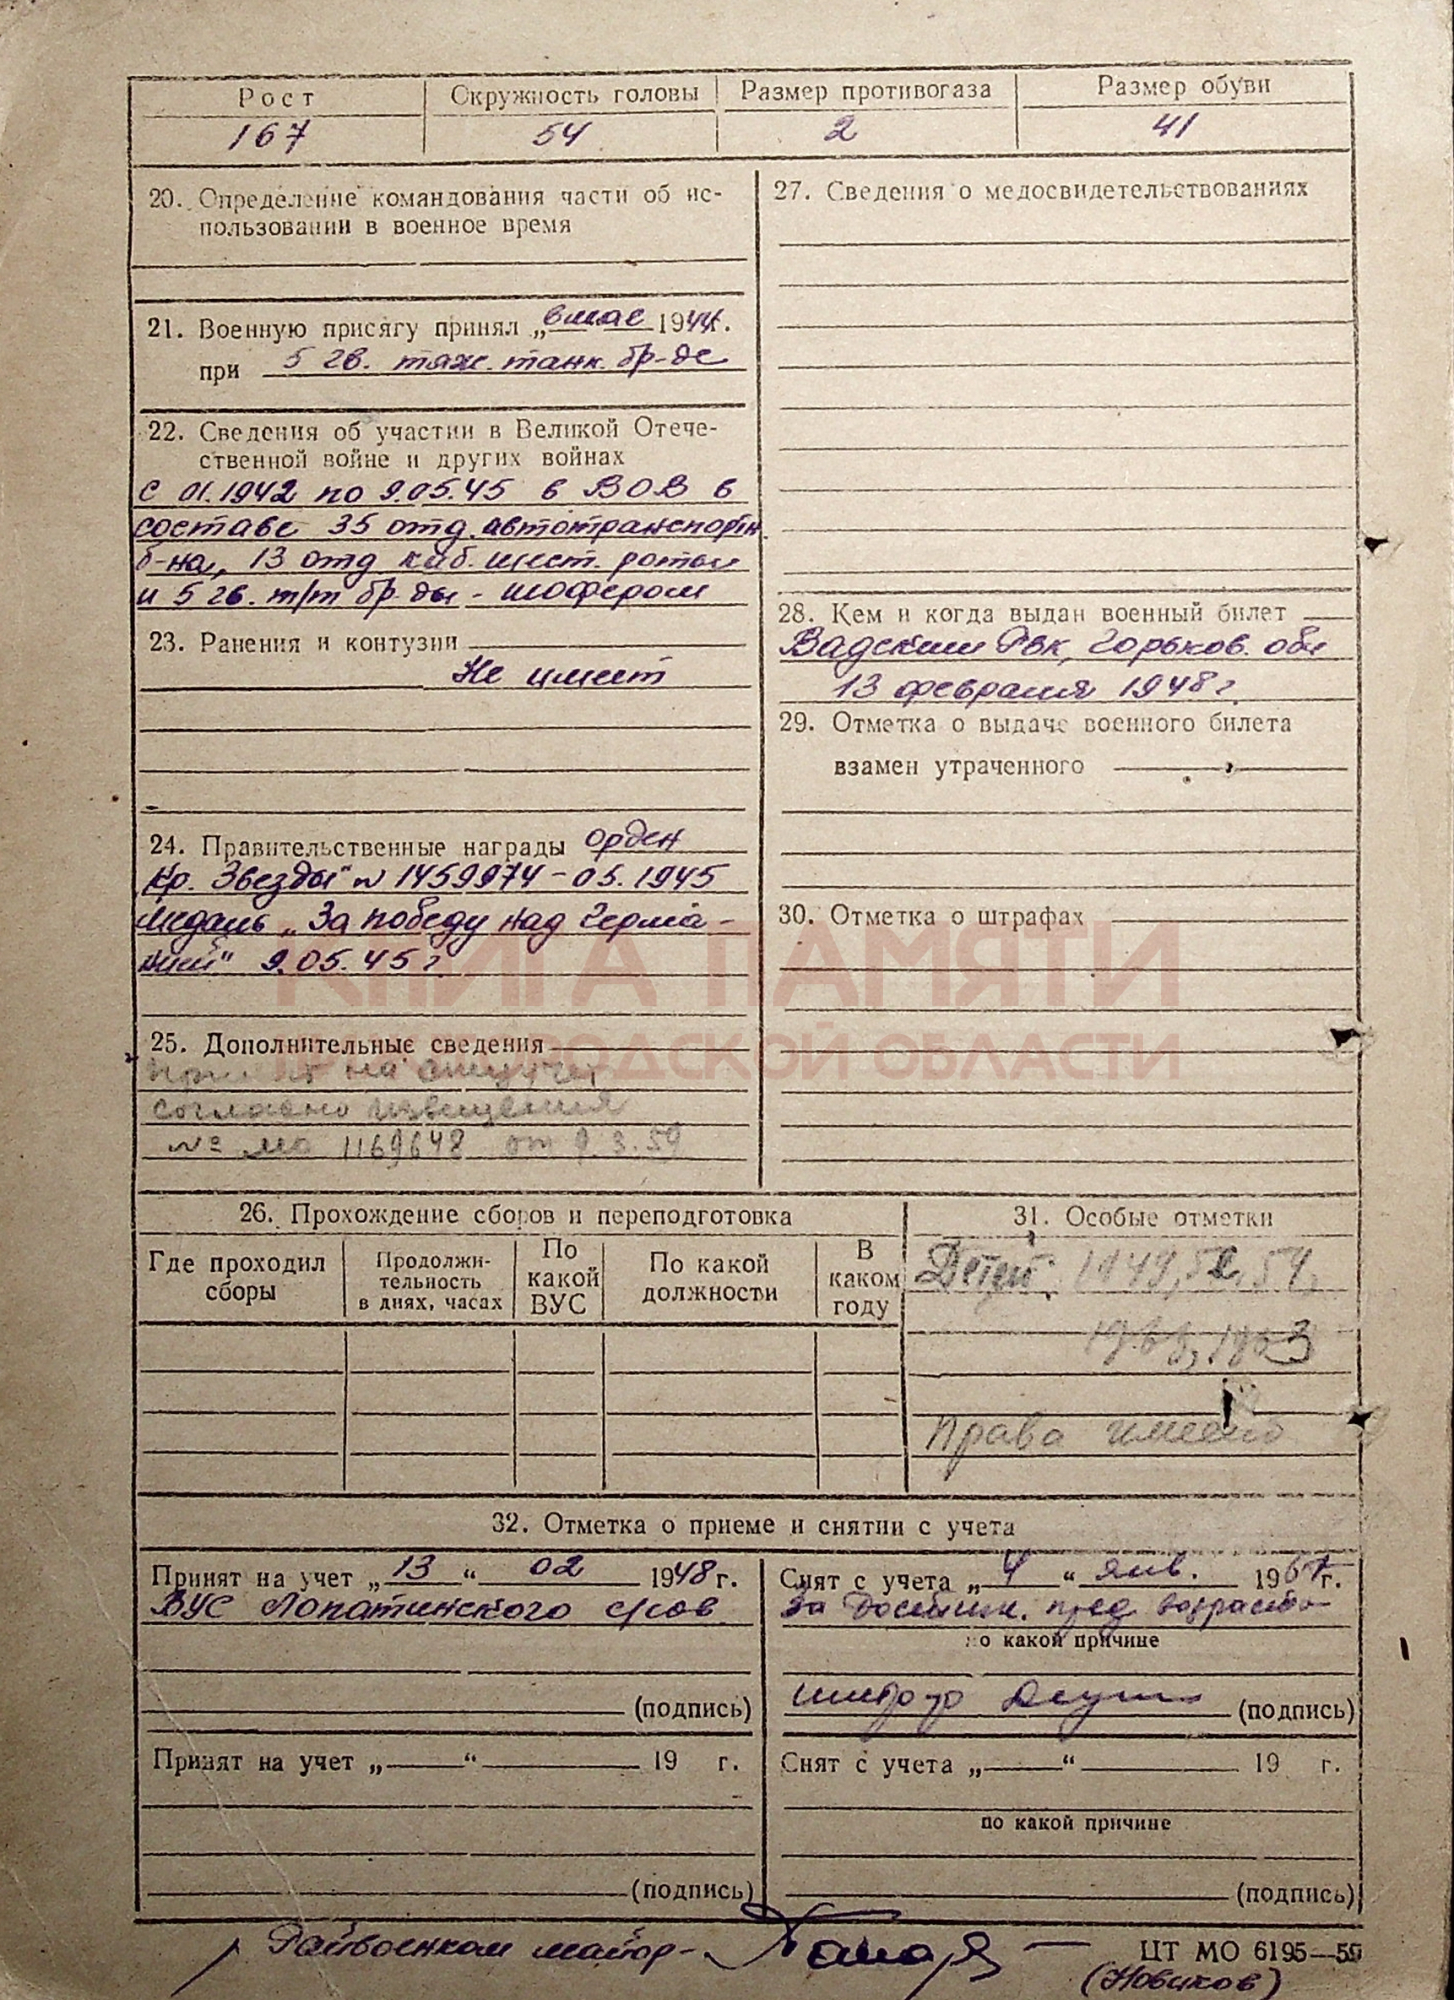 Рост Окружность головы Размер противогаза Размер обуви
167 54 2 41
20. Определение командования части об ис-
пользовании в военное время
21. Военную присягу принял „ в мае 1944г.
при 5 гв. тяж. танк. бр-де
22. Сведения об участии в Великой Отече-
ственной войне и других войнах
с 01.1942 по 9.05.45 в ВОВ в
составе 35 отд. автотранспортн.
б-на, 13 отд. каб. шест. роты
и 5 гв. т/т бр-ды - шофером
23. Ранения и контузии
Не имеет
24. Правительственные награды орден
„Кр. Звезды" N 1459974 - 05.1945
медаль „За победу над Герма-
нией" 9.05.45 г.
25. Дополнительные сведения
на спецучет
согласно извещения
№ мо 1169648 от 9.3.59
27. Сведения о медосвидетельствованиях
28. Кем и когда выдан военный билет
Вадским РВК, Горьков. обл
13 февраля 1948 г
29. Отметка о выдаче военного билета
взамен утраченного
30. Отметка о штрафах
КНИГА ПАМЯТИ
НИЖЕГОРОДСКОЙ ОБЛАСТИ
26. Прохождение сборов и переподготовка
Где проходил сборы Продолжи-тельность в днях, часах По какой ВУС По какой должности В каком году
31. Особые отметки
Детей: 1949, 52, 54,
1963
Права имею
32. Отметка о приеме и снятии с учета
Принят на учет „ 13 " 02 1948 г.
ВУС Лопатинского с/сов
(подпись)
Принят на учет „ " 19 г.
(подпись)
Снят с учета „ 4 " янв. 1967г.
за достиж. пред возраста
по какой причине
(подпись)
Снят с учета „ " 19 г.
по какой причине
(подпись)
Райвоенком майор -
ЦТ МО 6195—59
(Новиков)